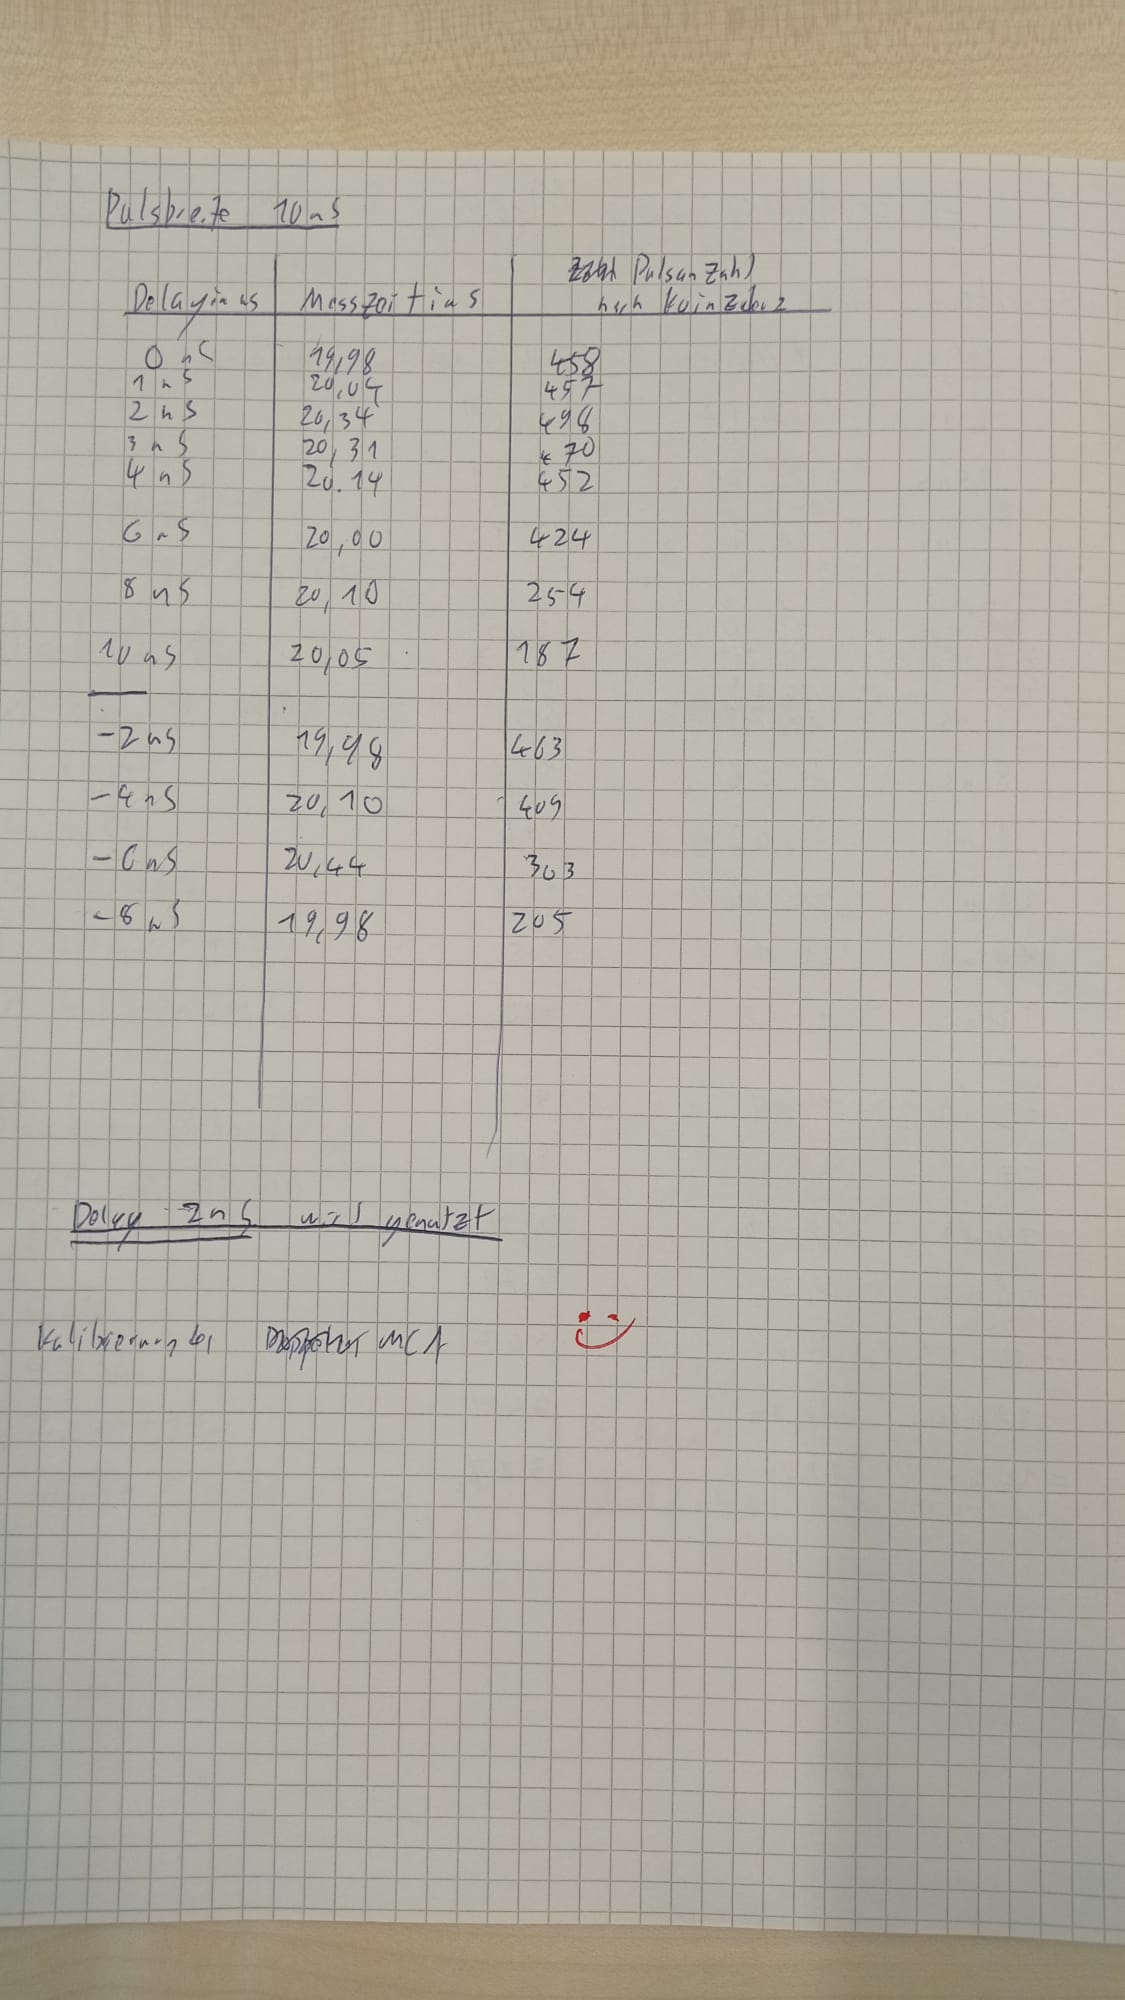 Pulsbreite 10 ns
Delay in ns Messzeit in s Pulsanzahl
nach Koinzidenz
0 ns 19,98 458
1 ns 20,04 457
2 ns 20,34 498
3 ns 20,31 470
4 ns 20.14 452
6 ns 20,00 424
8 ns 20,10 254
10 ns 20,05 187
-2 ns 19,98 463
-4 ns 20,10 409
-6 ns 20,44 303
-8 ns 19,98 205
Delay 2 ns wird genutzt
Kalibrierung des MCA